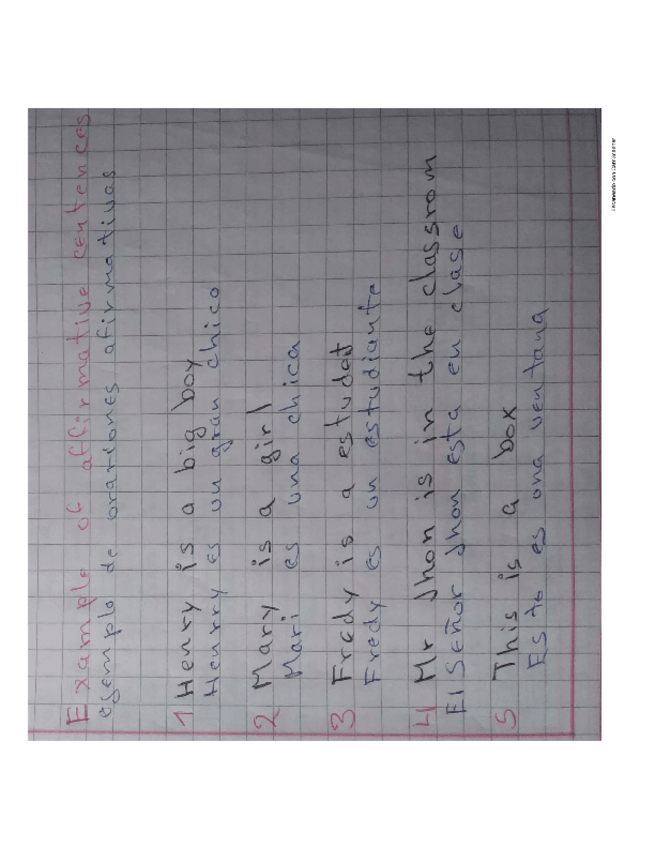 Example of affirmative centences
ejemplo de orariones afirmativas
1 Henry is a big boy
Henrry es un gran chico
2 Mary is a girl
Mari es una chica
3 Fredy is a estudet
Fredy es un estudiante
4 Mr Jhon is in the classrom
El Señor Jhon esta en clase
5 This is a box
Esto es ona ventana